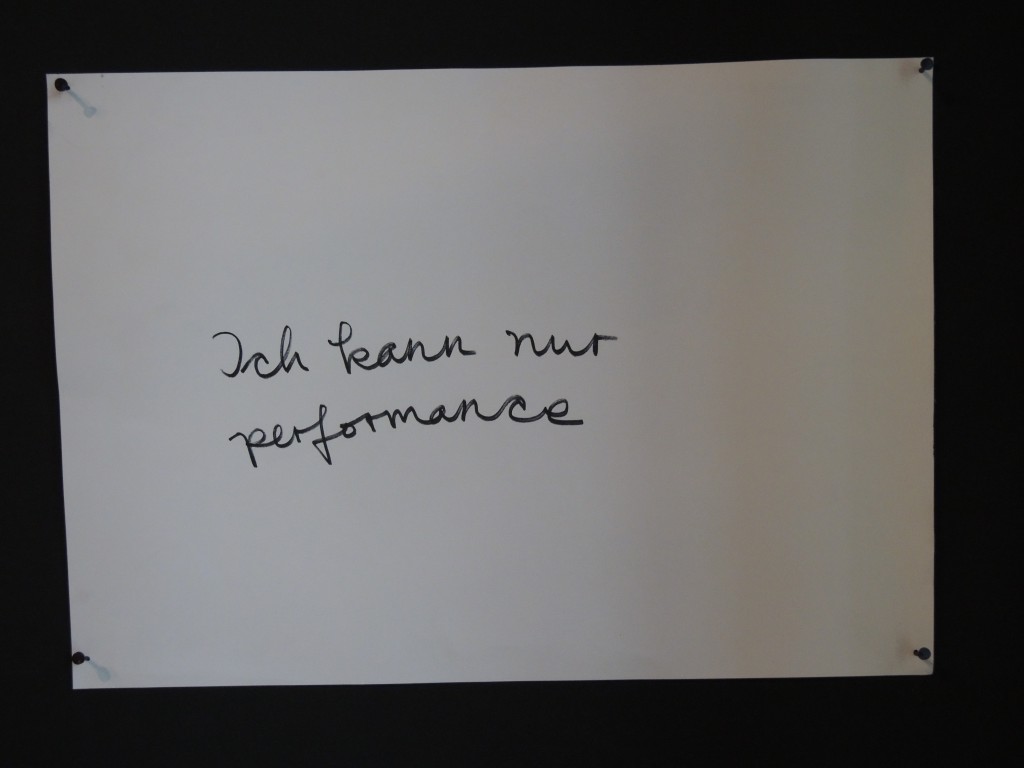 Ich kann nur
performance